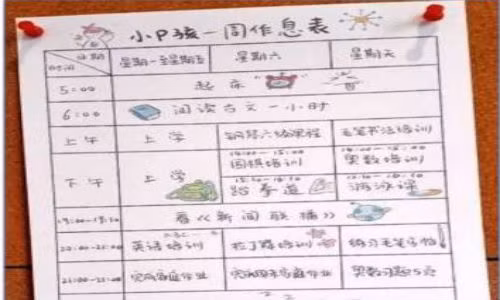 小P孩一周作息表
日期
时间
星期一至星期五 星期六 星期天
5:00 起床
6:00 阅读古文一小时
上午 上学 钢琴六级课程 毛笔书法培训
14:00-15:00 14:00-15:00
围棋培训 奥数培训
下午 上学
跆拳道 游泳课
19:00-19:30 看《新闻联播》
20:00-21:00 英语培训 拉丁舞培训 练习毛笔字帖
21:00-22:00 完成家庭作业 完成周末家庭作业 奥数习题5页